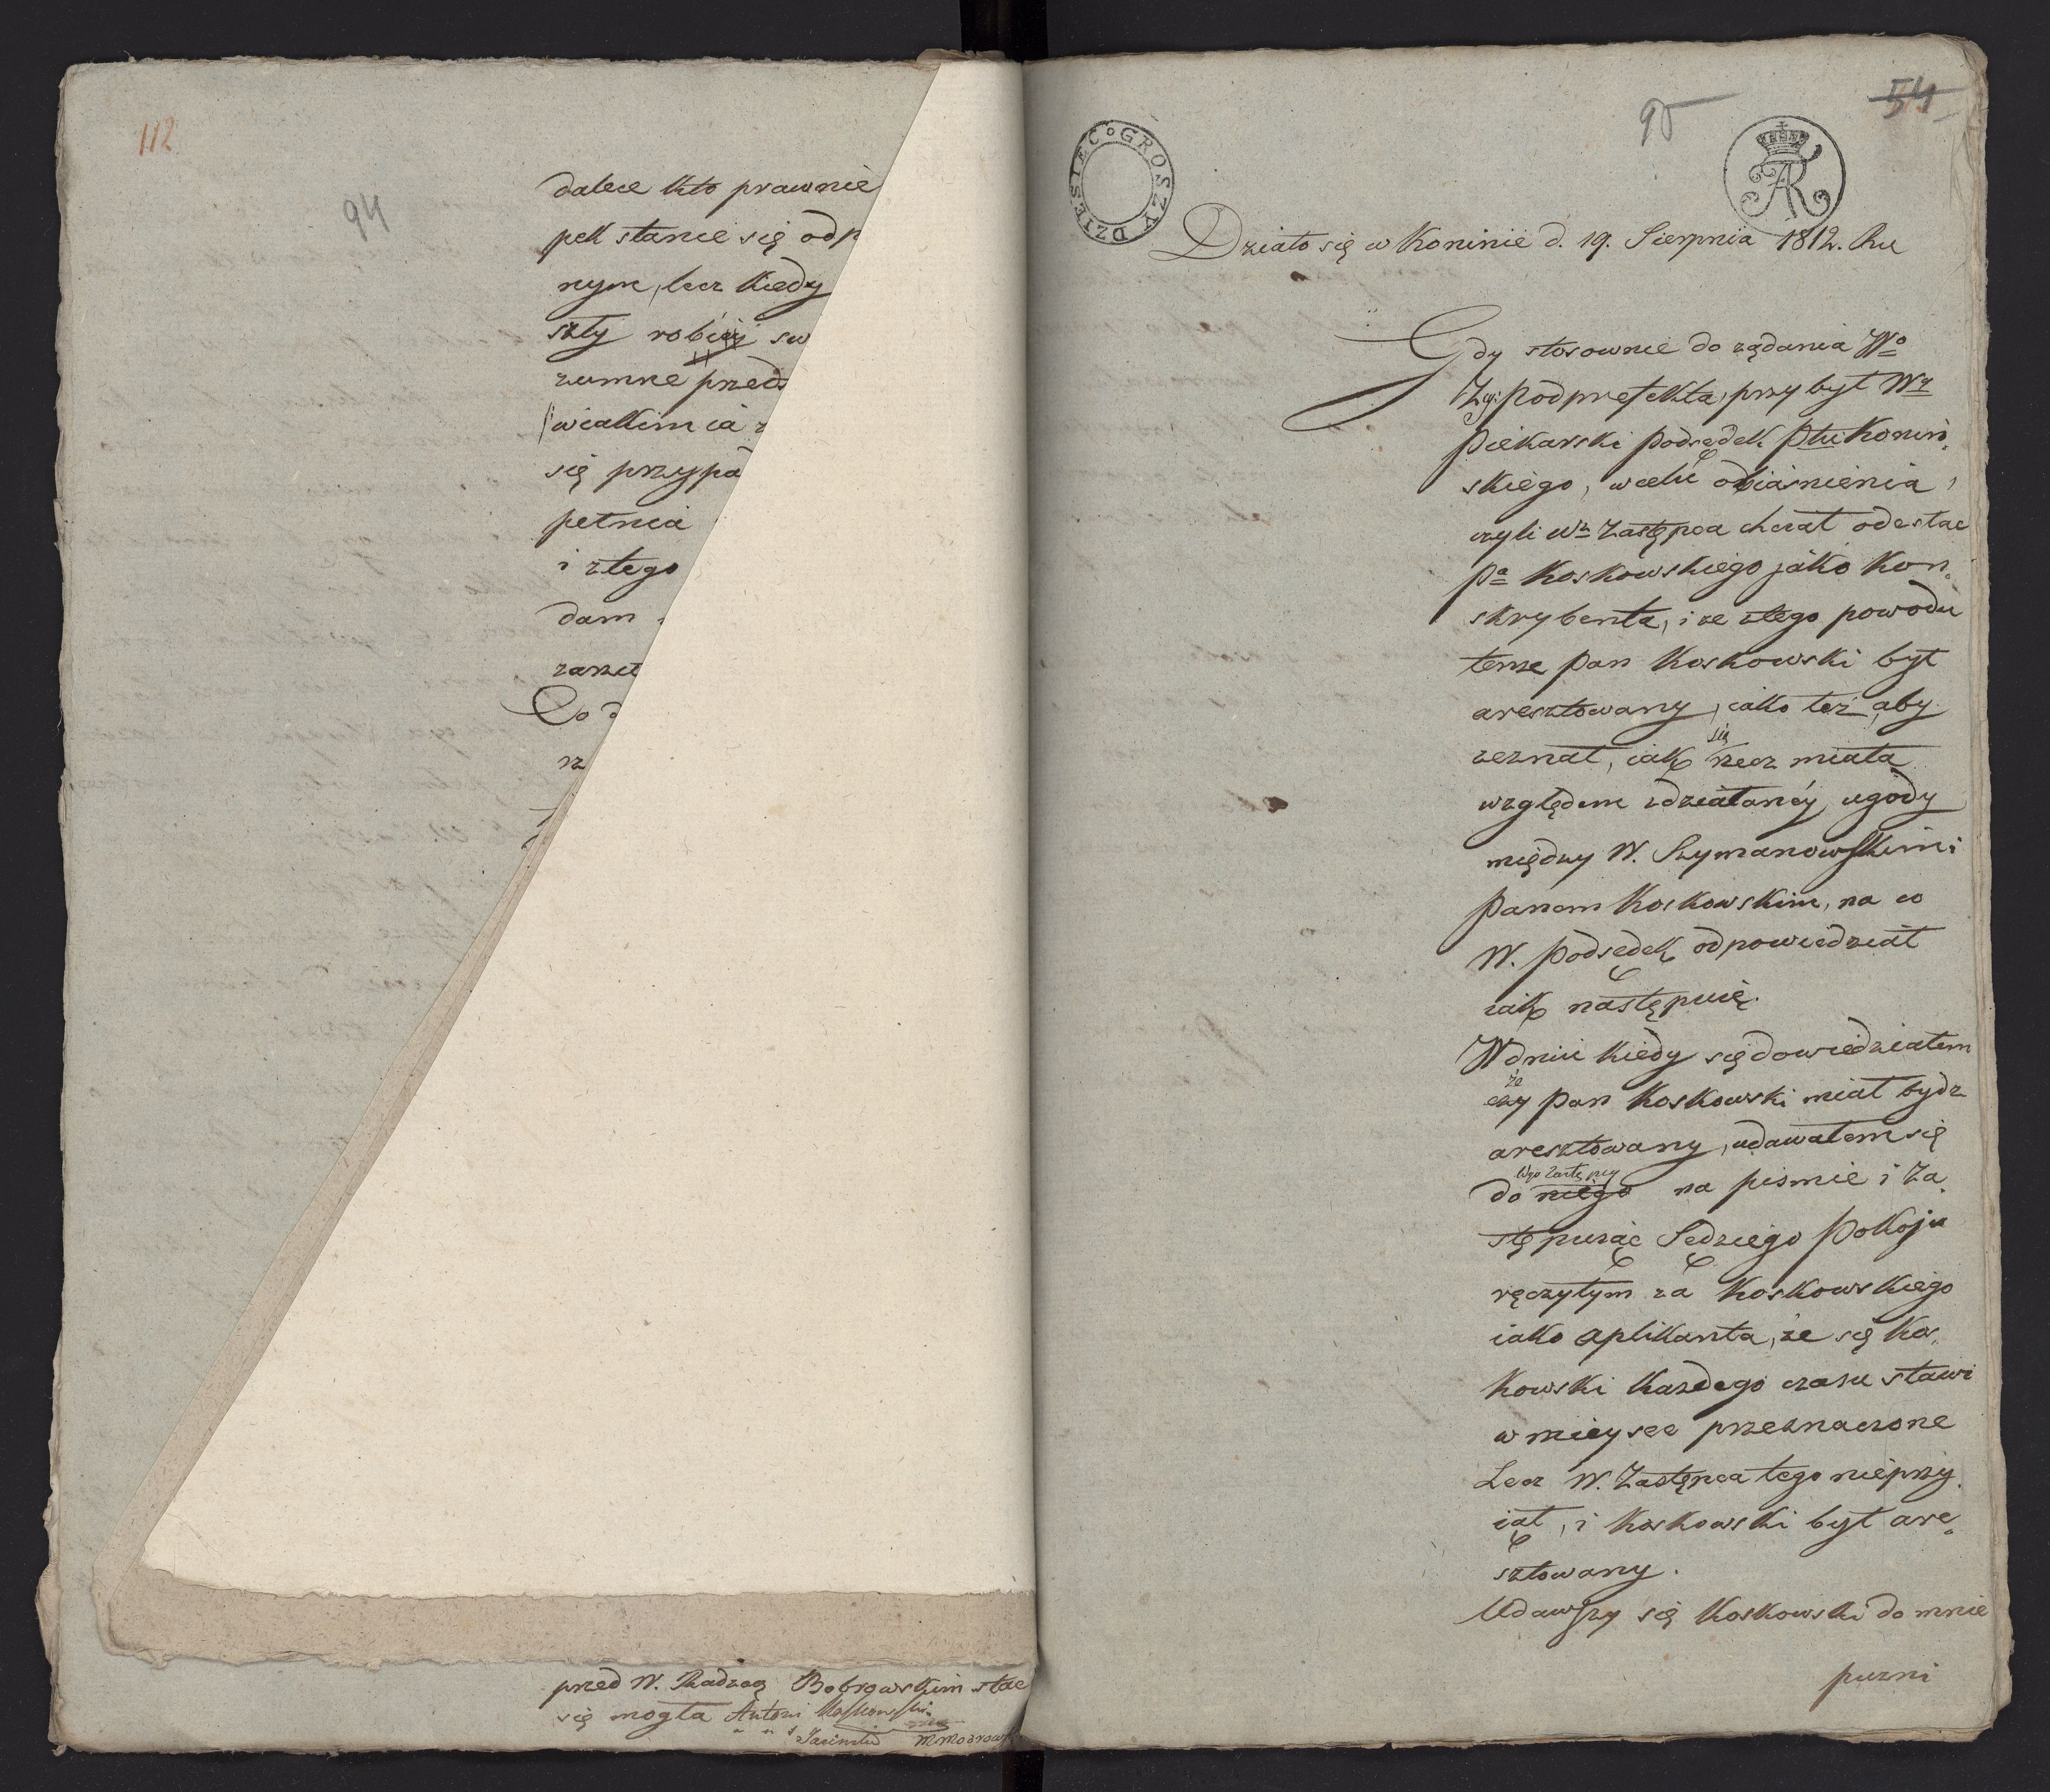 112
94
dalece kto prawnie
pek stanie się odp
nym, lecz kiedy
szły robiący sw
zumne przeds
wialkim ia z
się przypa
pełnia
i złego
dam
zarzu
Co d
sz
przed W. Radzcą Bobrowskim stac
się mogła Antoni Koskowski
95
54
DZIESIĘC GROSZY
FAR
Działo się w Koninie d. 19. Sierpnia 1812. Ru
Gdy stosownie do rządania Wo
Zgo: Podprefekta, przybył Wy
Piekarski Podsędek Pttu Konin„
skiego, w celu obiaśnienia,
czyli Wn Zastępca chciał odestac
Pa Koskowskiego jako Kon„
skrybenta, i ze złego powodu
tenże Pan Koskowski był
aresztowany, iako też aby
zeznał, iak się rzecz miała
względem zdziałanéy ugody
między W. Szymanowskim i
Panem Koskowskim, na co
W. Podsędek odpowiedział
iak następuię.
W dniu kiedy się dowiedziałem
że
czy Pan Koskowski miał bydz
aresztowany, udawałem się
Wgo Zastępcy
do niego na pismie i Za„
stępuiąc Sędziego Pokoju
ręczyłym za Koskowskiego
iako aplikanta, że się Kos„
kowski każdego czasu stawi
w mieysce przeznaczone
Lecz W. Zastępca tego nieprzy„
iął, i Koskowski był are„
sztowany.
Udawszy się Koskowski do mnie
puzni